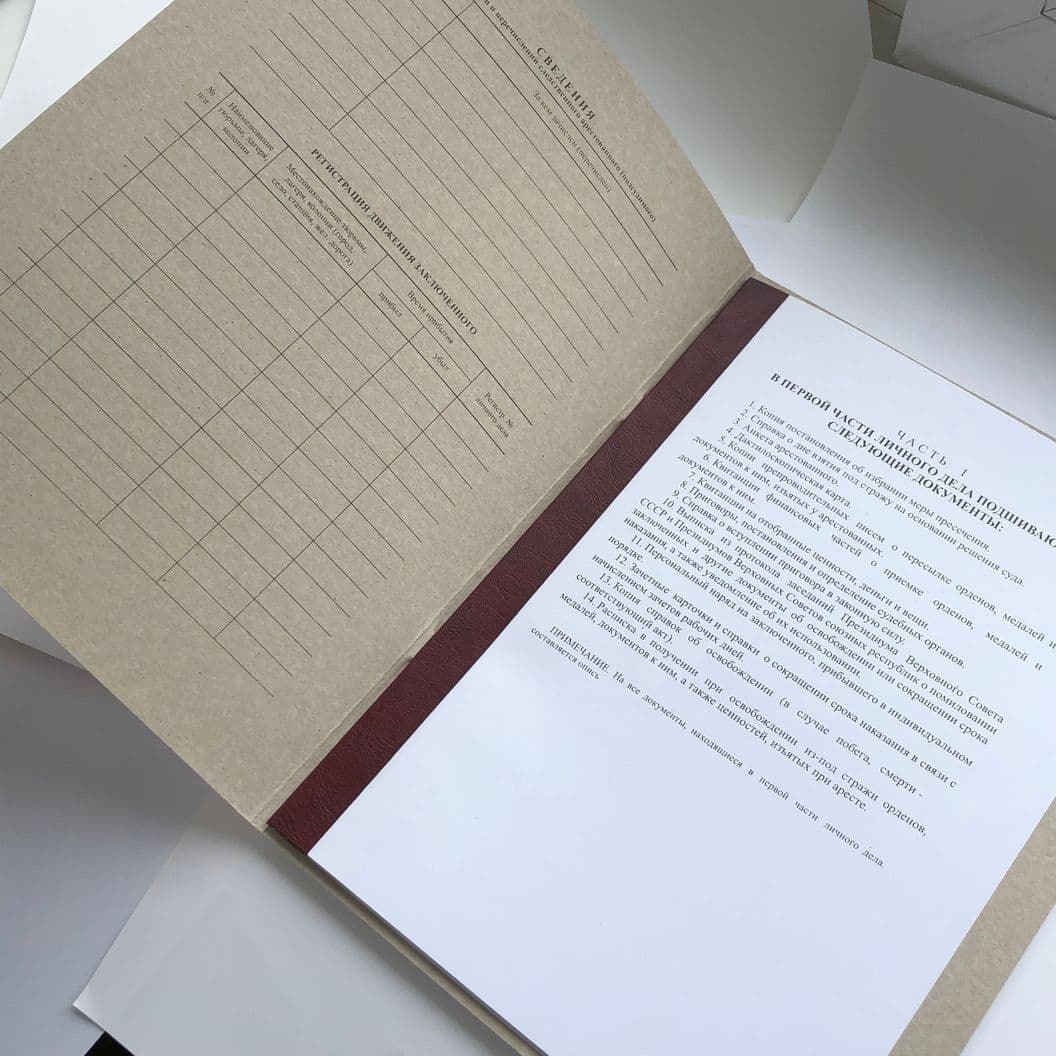 СВЕДЕНИЯ
и перечислении следственного арестованного (подсудимого)
За кем зачислен (перечислен)
РЕГИСТРАЦИЯ ДВИЖЕНИЯ ЗАКЛЮЧЕННОГО
№
п/п
Наименование
тюрьмы, лагеря,
колонии
Местонахождение тюрьмы,
лагеря, колонии (город,
село, станция, жел. дорога)
Время прибытия
прибыл
убыл
Регистр. №
личного дела
ЧАСТЬ I
В ПЕРВОЙ ЧАСТИ ЛИЧНОГО ДЕЛА ПОДШИВАЮ
СЛЕДУЮЩИЕ ДОКУМЕНТЫ:
1. Копия постановления об избрании меры пресечения.
2. Справка о дне взятия под стражу на основании решения суда.
3. Анкета арестованного.
4. Дактилоскопическая карта.
5. Копии препроводительных писем о пересылке орденов, медалей и
документов к ним, изъятых у арестованных.
6. Квитанции финансовых частей о приемке орденов, медалей и
документов к ним.
7. Квитанции на отобранные ценности, деньги и вещи.
8. Приговоры, постановления и определение судебных органов.
9. Справка о вступлении приговора в законную силу.
10. Выписка из протокола заседаний Президиума Верховного Совета
СССР и Президиумов Верховных Советов союзных республик о помиловании
заключенных и другие документы об освобождении или сокращении срока
наказания, а также уведомление об их использовании.
11. Персональный наряд на заключенного, прибывшего в индивидуальном
порядке.
12. Зачетные карточки и справки о сокращении срока наказания в связи с
начислением зачетов рабочих дней.
13. Копия справок об освобождении (в случае побега, смерти -
соответствующий акт).
14. Расписка в получении при освобождении из-под стражи орденов,
медалей, документов к ним, а также ценностей, изъятых при аресте.
ПРИМЕЧАНИЕ. На все документы, находящиеся в первой части личного дела.
составляется опись